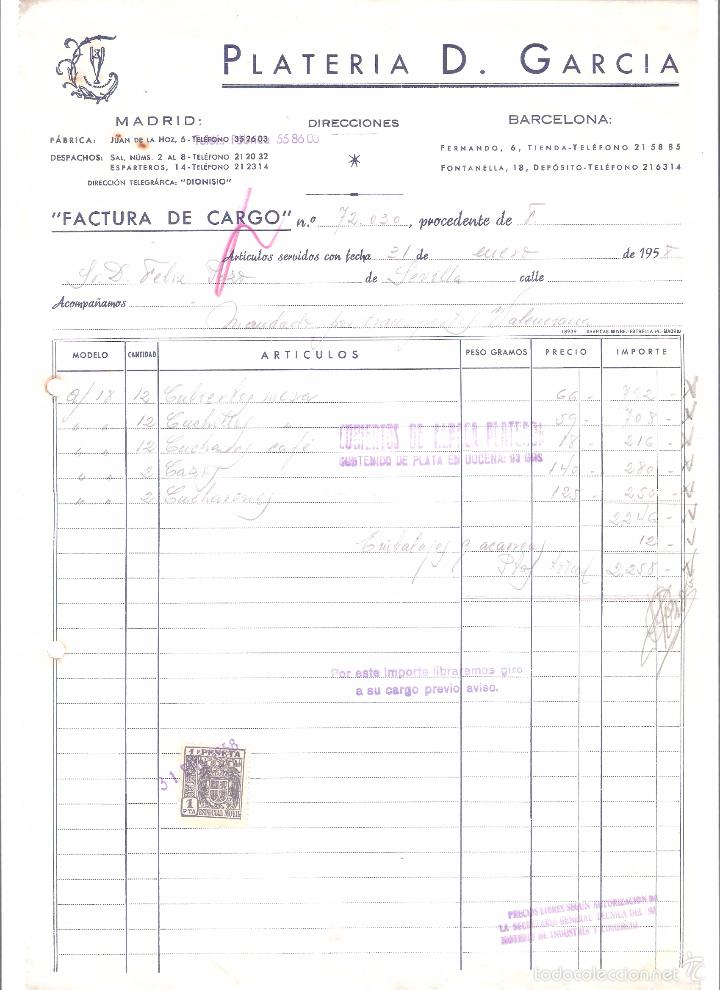 PLATERIA D. GARCIA
MADRID:
DIRECCIONES
BARCELONA:
FÁBRICA: JUAN DE LA HOZ, 6 - TELÉFONO 35 26 03
55 86 00
DESPACHOS: SAL, NÚMS. 2 AL 8 - TELÉFONO 21 20 32
ESPARTEROS, 14 - TELÉFONO 21 23 14
DIRECCIÓN TELEGRÁFICA: "DIONISIO"
FERNANDO, 6, TIENDA-TELÉFONO 21 58 85
FONTANELLA, 18, DEPÓSITO-TELÉFONO 21 63 14
"FACTURA DE CARGO" n.º 72.030, procedente de F.
Artículos servidos con fecha 31 de enero de 1958
Sr. D. Felix Pozo de Sevilla calle
Acompañamos
Mandado por Valenciana
MODELO CANTIDAD ARTICULOS PESO GRAMOS PRECIO IMPORTE
9/18 12 Cubiertos mesa 66 - 792 -
" " 12 Cuchillos " 59 - 708 -
" " 12 Cucharas café 18 - 216 -
" " 2 Cazos 140 - 280 -
" " 2 Cucharones 125 - 250 -
2246 -
Embalajes y acarreos 12 -
Ptas total 2.258 -
CUBIERTOS DE ALPACA PLATEADA
CONTENIDO DE PLATA EN DOCENA: 93 GRS
Por este importe libraremos giro
a su cargo previo aviso.
1 PESETA
1 PTA
ESPECIAL MOVIL
PRECIOS LIBRES SEGUN AUTORIZACION DE
LA SECRETARIA GENERAL TECNICA DEL MI
NISTERIO DE INDUSTRIA Y COMERCIO
todocoleccion.net